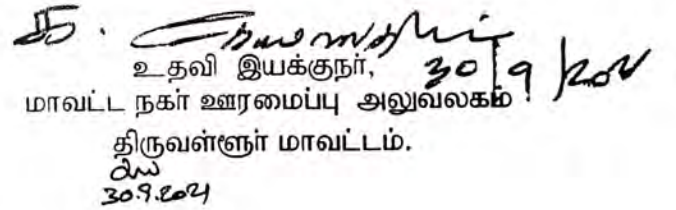 உதவி இயக்குநர், 30/9/2021
மாவட்ட நகர் ஊரமைப்பு அலுவலகம்
திருவள்ளூர் மாவட்டம்.
30.9.2021